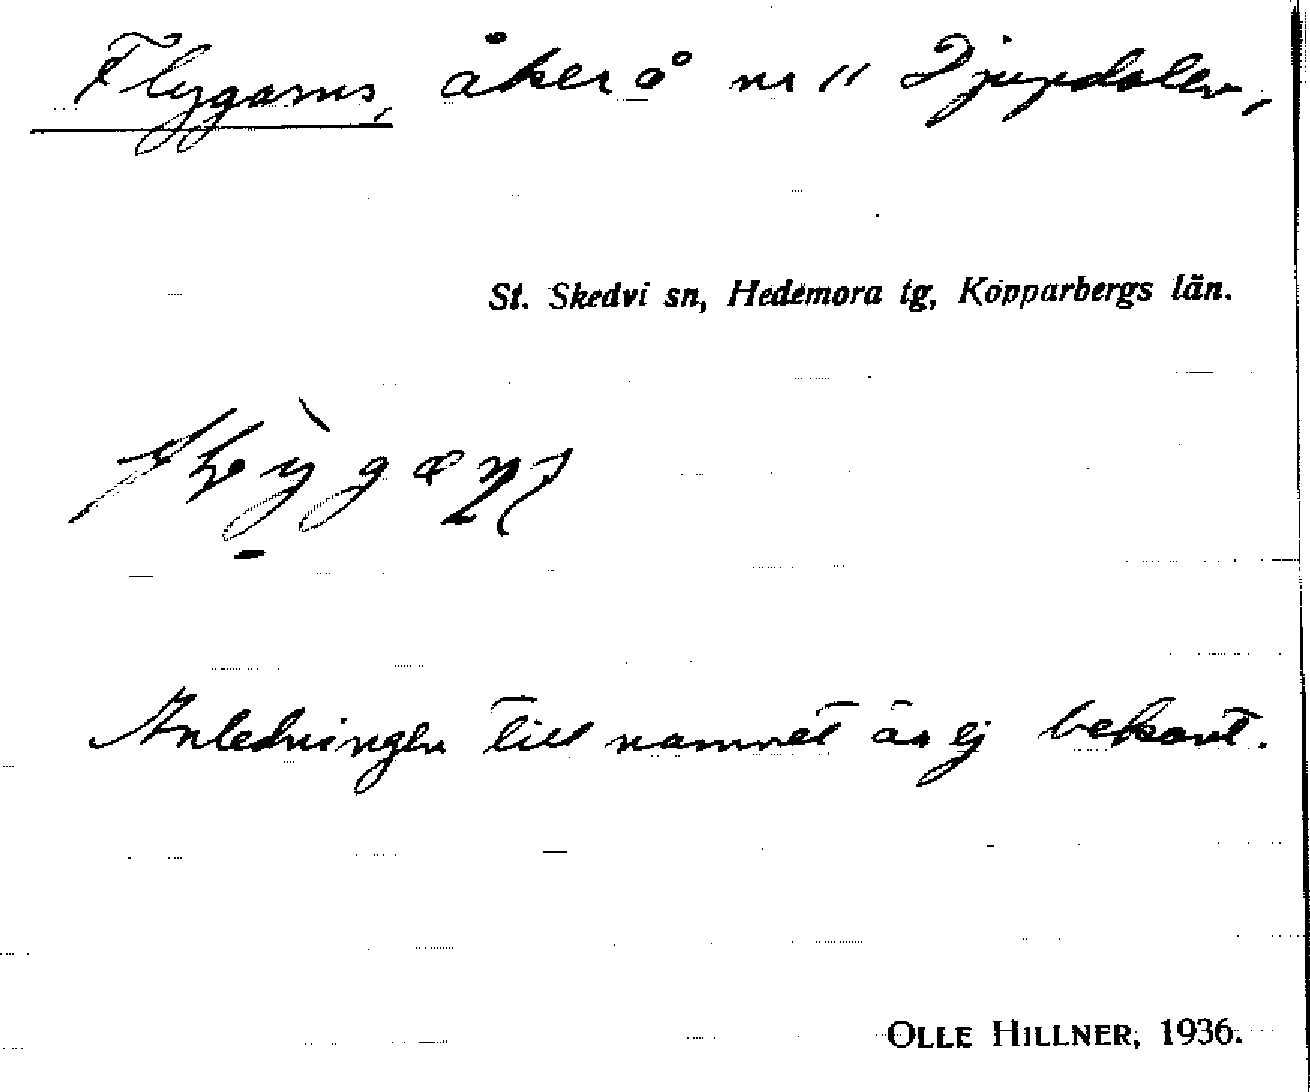 Flygarns, åker å nr 11 Djupdalen,
St. Skedvi sn, Hedemora tg, Kopparbergs län.
Anledningen till namnet är ej bekant.
OLLE HILLNER, 1936.